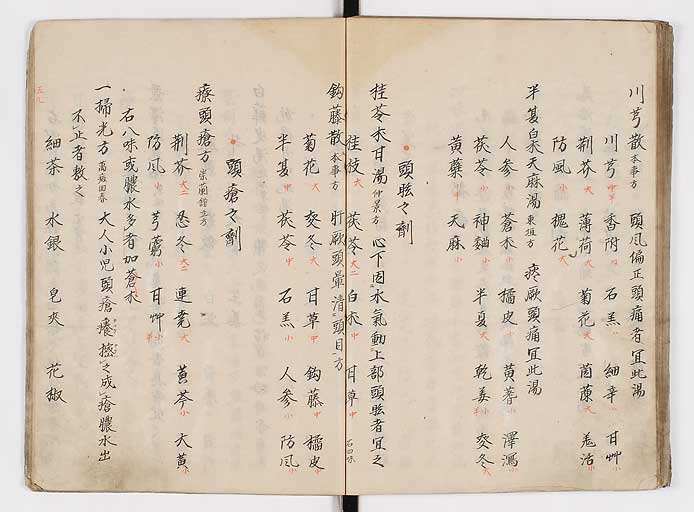 川芎散 本事方 頭風偏正頭痛者宜此湯
川芎 中半 香附 中 石羔 小 細辛 小 甘艸 小
荊芥 大 薄荷 大 菊花 大 茵蔯 大 羗活 小
防風 小 槐花 大
半夏白朮天麻湯 東垣方 痰厥頭痛宜此湯
人参 小 蒼朮 小 橘皮 黄蓍 小 澤瀉
茯苓 小 神麯 小 半夏 大 乾姜 小半 麥冬 大
黄蘗 中 天麻 小
頭眩之劑
桂苓朮甘湯 仲景方 心下固水氣動上部頭眩者宜之
桂枝 大 茯苓 大二 白朮 中 甘草 中 右四味
鈎藤散 本事方 肝厥頭暈清頭目方
菊花 大 麥冬 大 甘草 中 鈎藤 中 橘皮 中
半夏 中 茯苓 中 石羔 小 人参 小 防風 小
頭瘡之劑
療頭瘡方 崇蘭館主方
荊芥 大二 忍冬 大二 連堯 大 黄芩 小 大黄 小
防風 小 芎藭 小 甘艸 半
右八味或膿水多者加蒼朮
一掃光方 萬病回春 大人小児頭瘡癢搔之成瘡膿水出
不止者敷之
細茶 水銀 皂夾 花椒